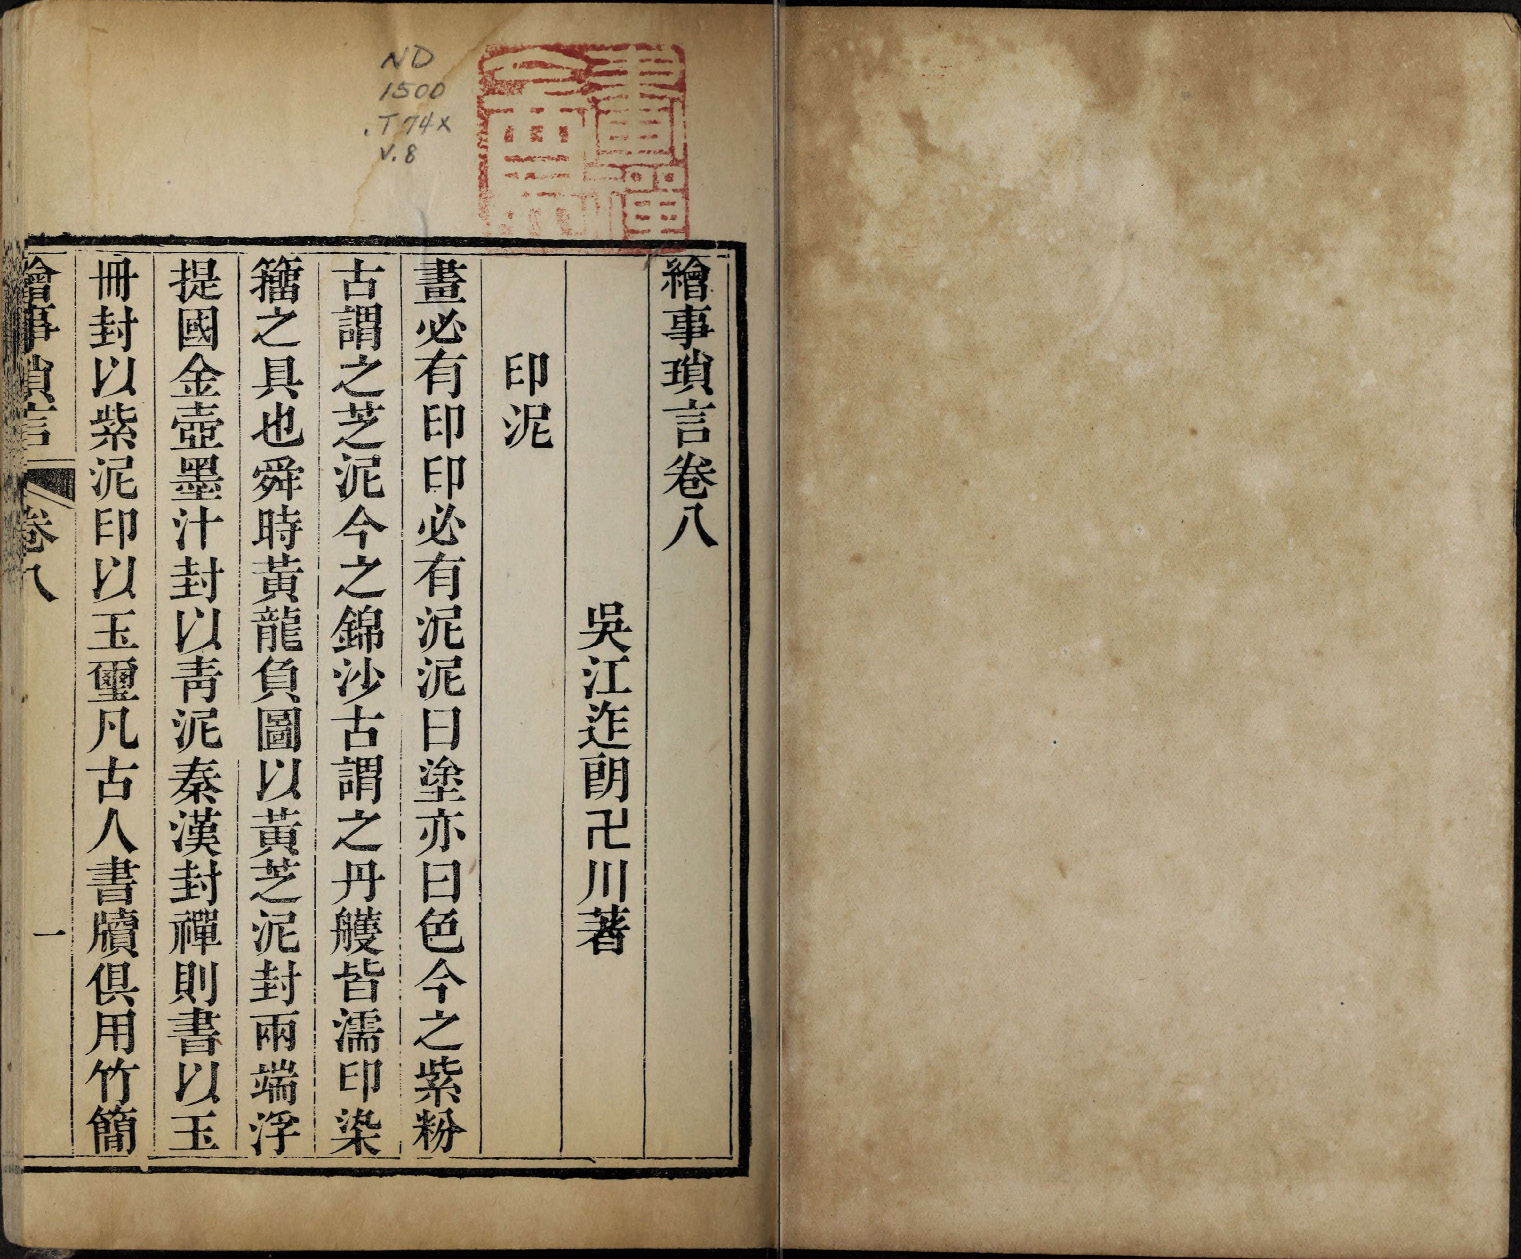 ND
1500
.T74x
v.8
繪事瑣言卷八
吳江迮朗卍川著
印泥
畫必有印印必有泥泥曰塗亦曰色今之紫粉
古謂之芝泥今之錦沙古謂之丹雘皆濡印染
籀之具也舜時黃龍負圖以黃芝泥封兩端浮
提國金壺墨汁封以青泥秦漢封禪則書以玉
冊封以紫泥印以玉璽凡古人書牘俱用竹簡
繪事瑣言
卷八
一